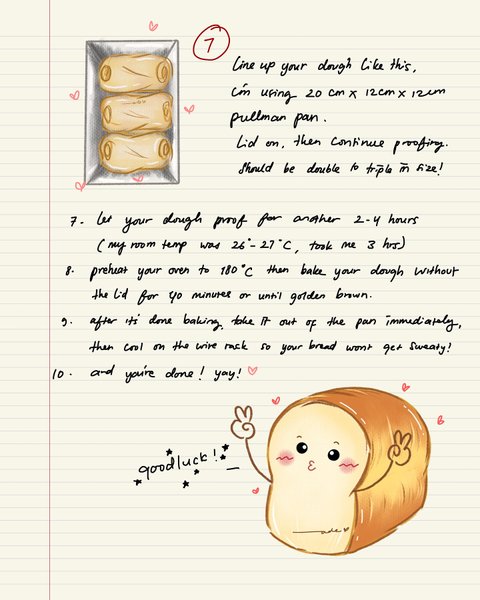 7
Line up your dough like this,
I'm using 20 cm x 12cm x 12cm
pullman pan.
Lid on, then continue proofing.
Should be double to triple in size!
7. let your dough proof for another 2-4 hours
(my room temp was 26°-27°C, took me 3 hrs)
8. preheat your oven to 180°C then bake your dough without
the lid for 40 minutes or until golden brown.
9. after it's done baking, take it out of the pan immediately,
then cool on the wire rack so your bread wont get sweaty!
10. and you're done! yay!
goodluck!